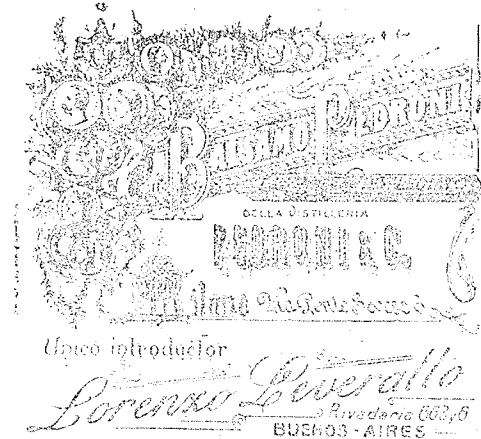 BALSAMO PEDRONI
DELLA DISTILLERIA
PEDRONI & C.
Milano Via Ponte
Unico introductor
Lorenzo Leverallo
Rivadavia 662,6
BUENOS-AIRES